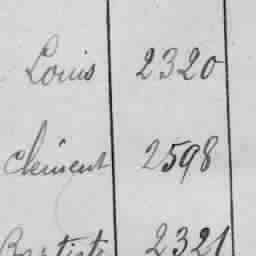 Louis 2320
Clément 2598
Baptiste 2321